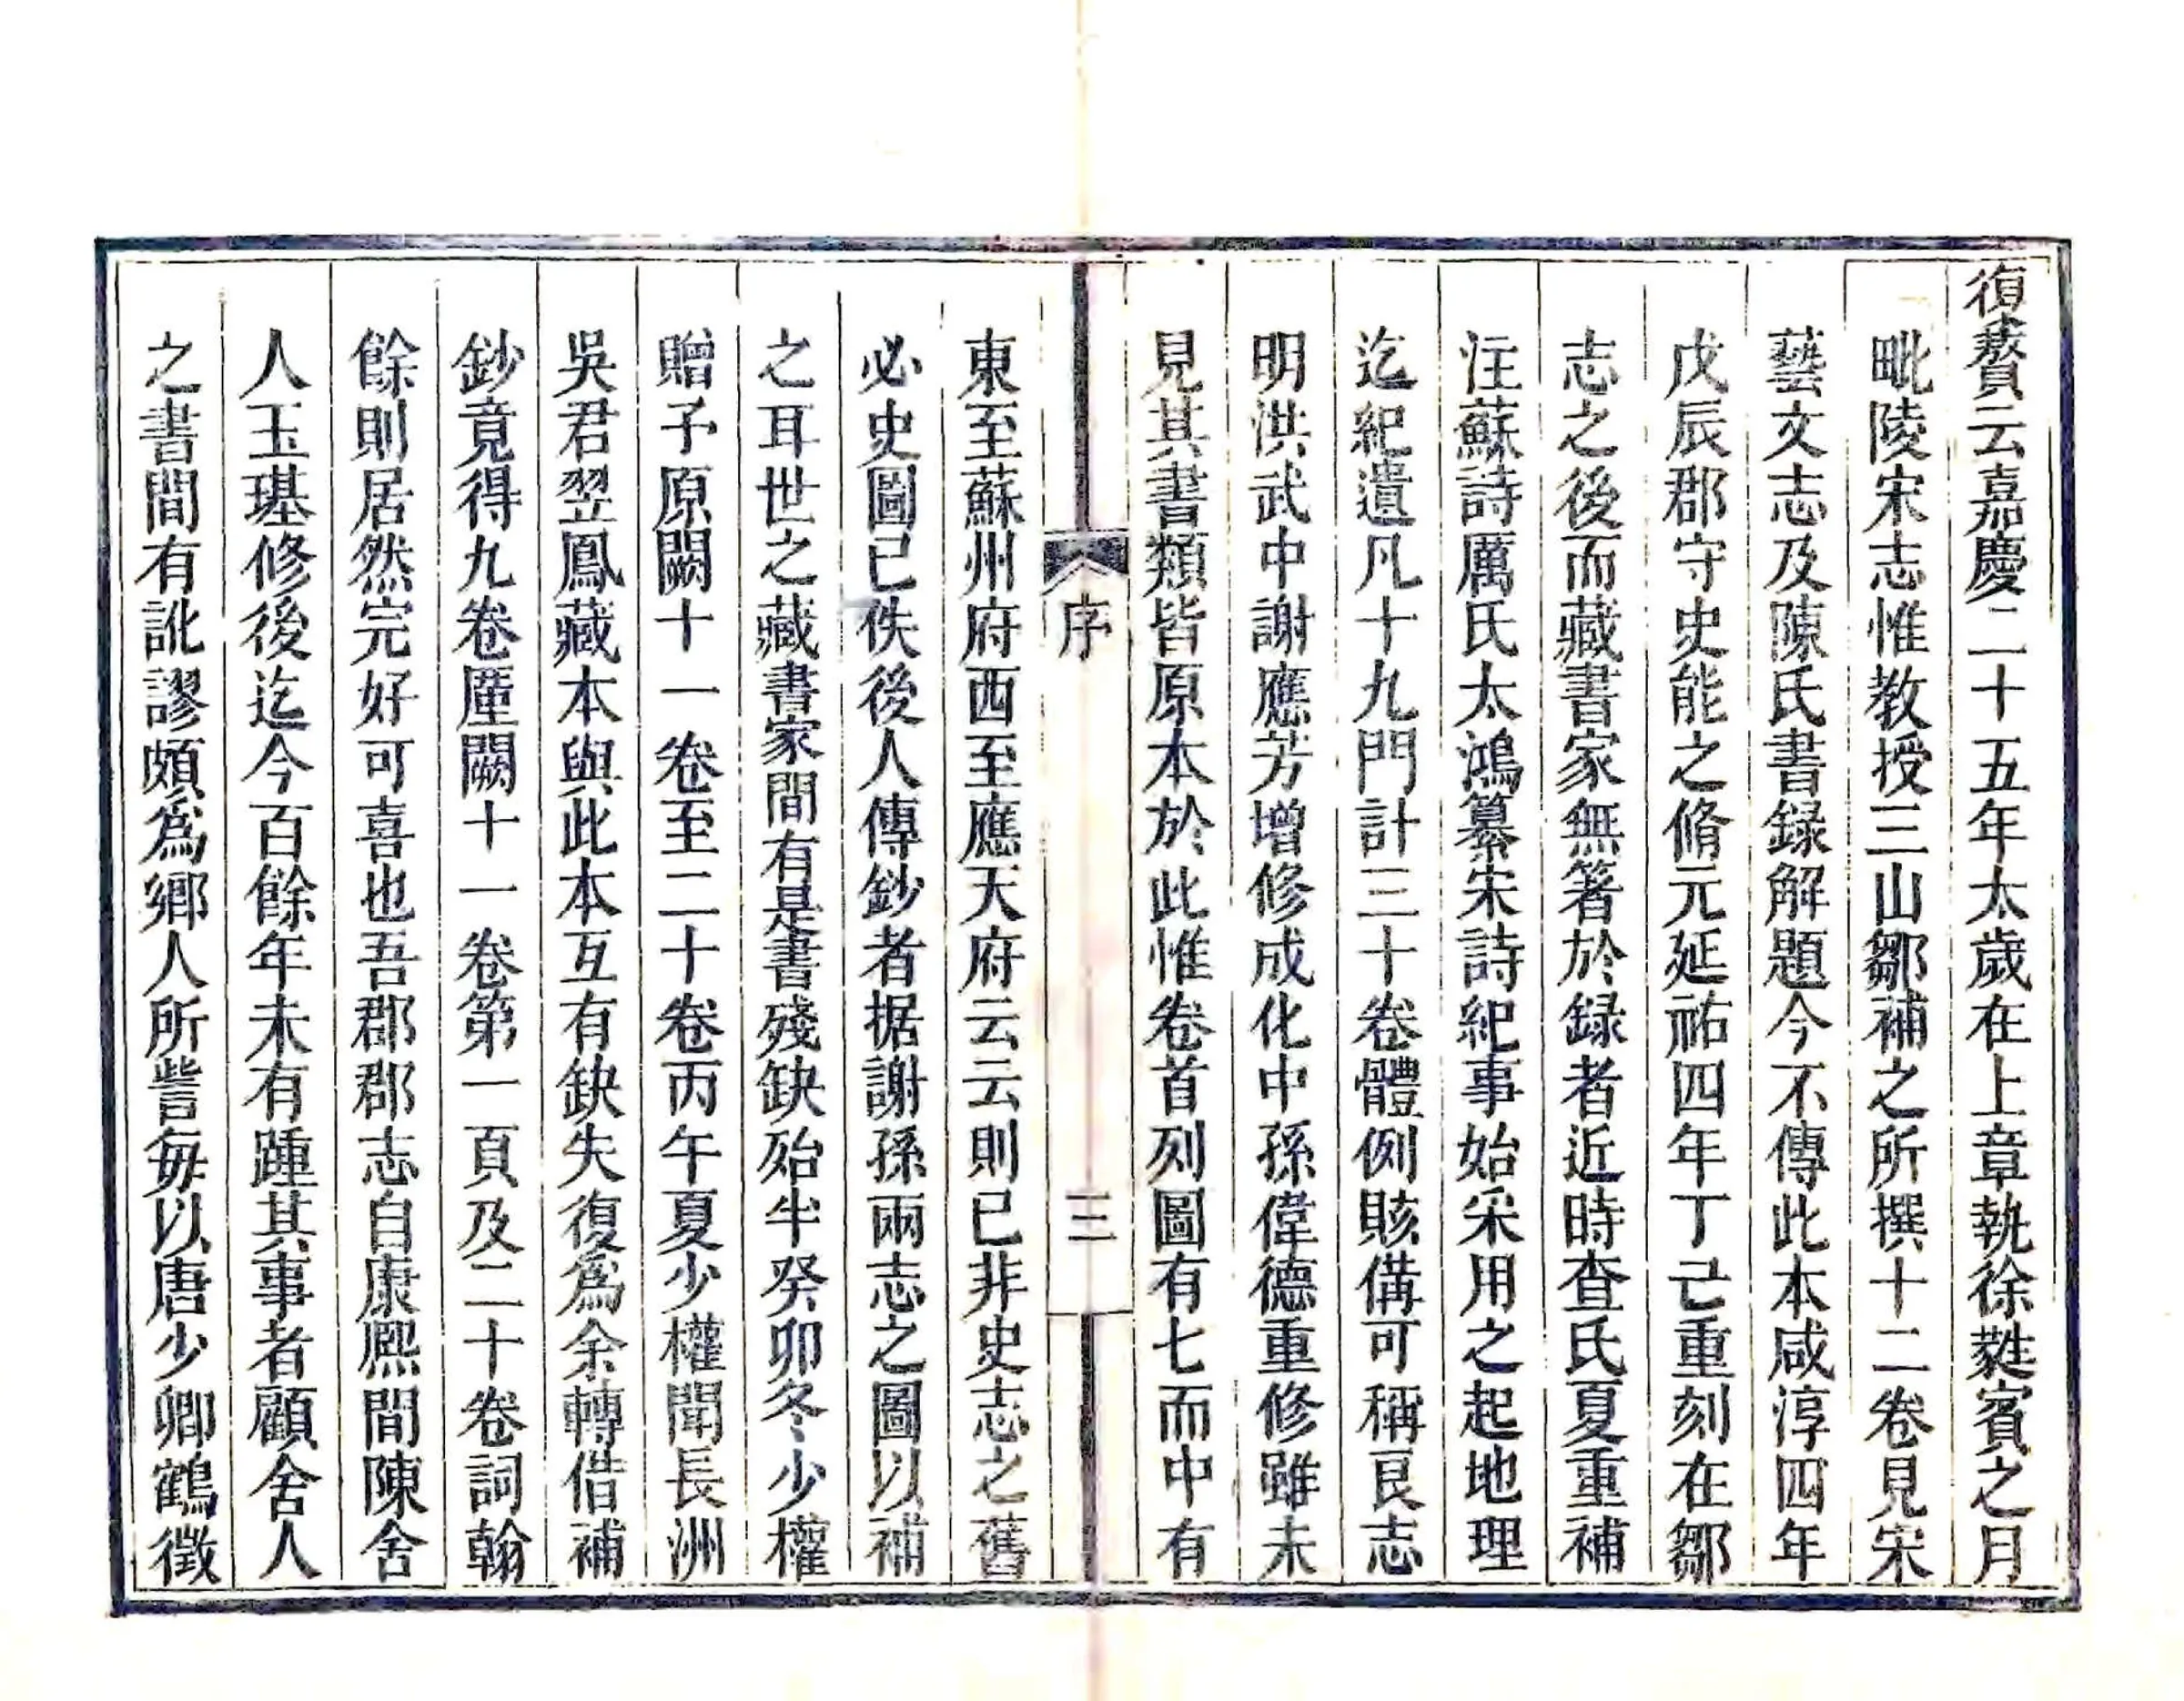 復贅云嘉慶二十五年太歲在上章執徐蕤賓之月
毗陵宋志惟教授三山鄒補之所撰十二卷見宋
藝文志及陳氏書録解題今不傳此本咸淳四年
戊辰郡守史能之脩元延祐四年丁巳重刻在鄒
志之後而藏書家無箸於録者近時查氏夏重補
注蘇詩厲氏太鴻纂宋詩紀事始采用之起地理
迄紀遺凡十九門計三十卷體例賅備可稱艮志
明洪武中謝應芳增修成化中孫偉德重修雖未
見其書類皆原本於此惟卷首列圖有七而中有
序
三
東至蘇州府西至應天府云云則已非史志之舊
必史圖已佚後人傳鈔者据謝孫兩志之圖以補
之耳世之藏書家間有是書殘缺殆半癸卯冬少權
贈予原闕十一卷至二十卷丙午夏少權聞長洲
吳君翌鳳藏本與此本互有缺失復爲余轉借補
鈔竟得九卷厪闕十一卷第一頁及二十卷詞翰
餘則居然完好可喜也吾郡郡志自康熙間陳舍
人玉璂修後迄今百餘年未有踵其事者顧舍人
之書間有訛謬頗爲鄉人所訾每以唐少卿鶴徵